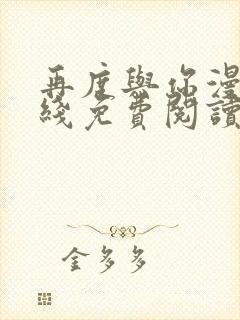 再度與你漫
綫免費閱讀
金多多